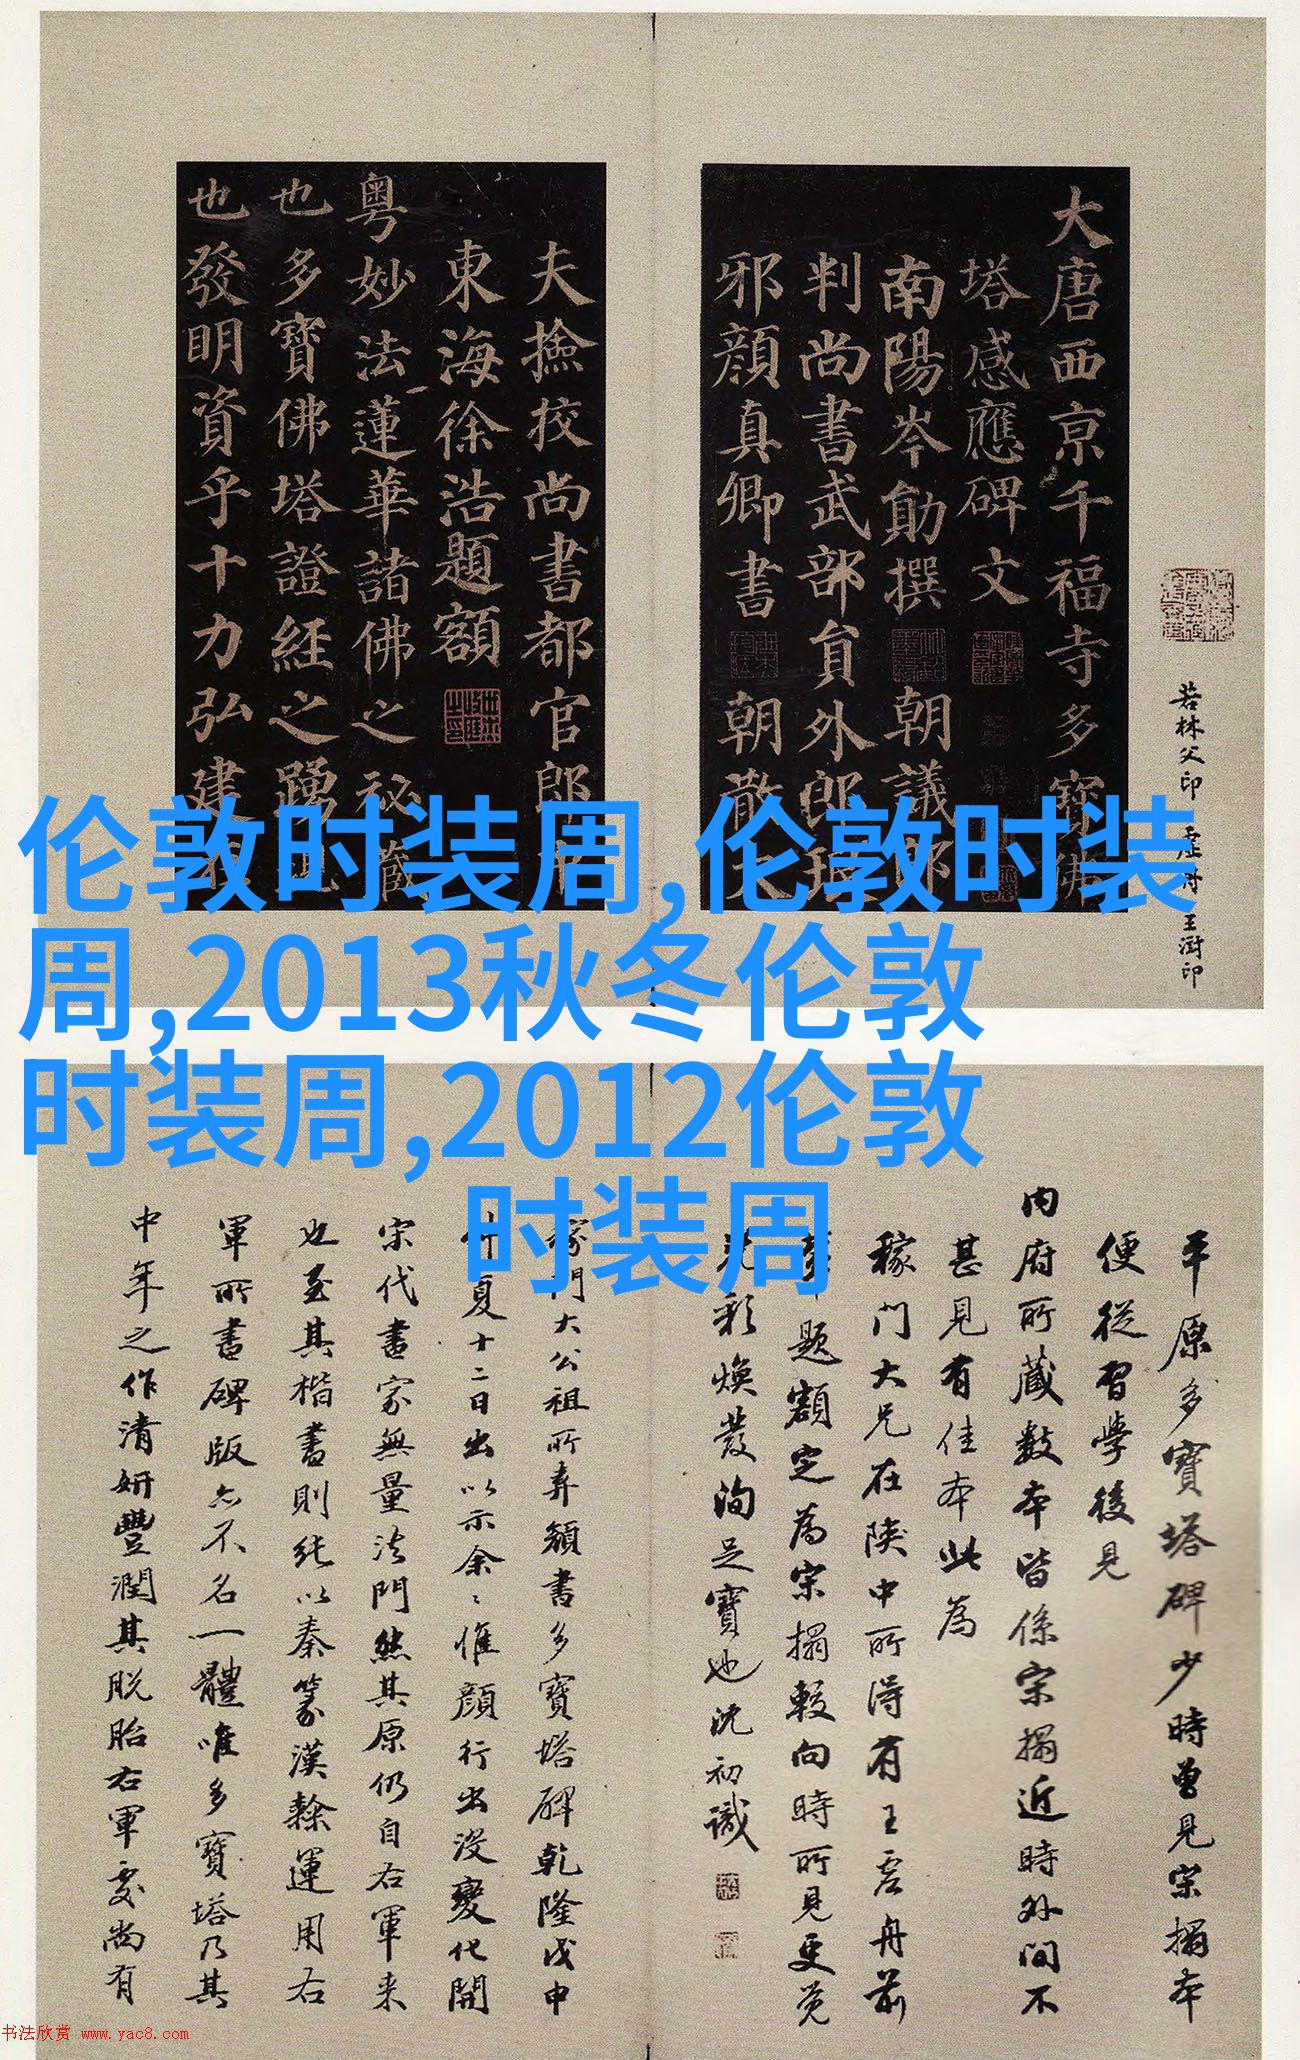 大唐西京千福寺多寶佛
塔感應碑文
南陽岑勛撰 朝議郎
判尚書武部員外郎琅
邪顏真卿書 朝散大
夫撿挍尚書都官郎中
東海徐浩題額
粵妙法蓮華諸佛之祕藏
也多寶佛塔證經之踴現
也發明資乎十力弘建
若林父印 虛舟 王澍印
伦敦时装周,伦敦时装
周,2013秋冬伦敦
时装周,2012伦敦
时装周
平原多寶塔碑少時曾見宋搨本
便從習學後見
內府所藏數本皆係宋搨近時外間不
甚見有佳本此為
稼門大兄在陝中所得有王虛舟前
輩題額定為宋搨較向時所見更覺
光彩煥發洵足寶也沈初識
稼門大公祖所弆顏書多寶塔碑乾隆戊申
夏十二日出以示余〻惟顏行出沒變化開
宋代書家無量法門然其原仍自右軍來
也至其楷書則純以秦篆漢隸運用右
軍所書碑版亦不名一體唯多寶塔乃其
中年之作清妍豐潤其脫胎右軍處尚有
书法欣赏 www.yac8.com